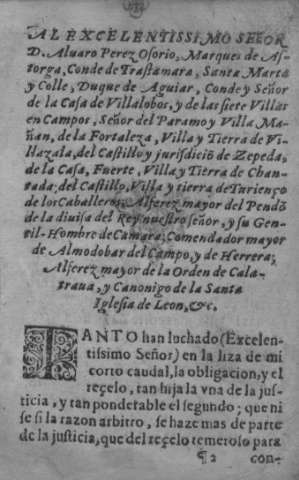 AL EXCELENTISSIMO SEÑOR
D. Aluaro Perez Osorio, Marques de As-
torga, Conde de Trastamara, Santa Marta
y Colle, Duque de Aguiar, Conde y Señor
de la Casa de Villalobos, y de las siete Villas
en Campos, Señor del Paramo y Villa Ma-
ñan, de la Fortaleza, Villa y Tierra de Vi-
llazala, del Castillo y jurisdiciõ de Zepeda,
de la Casa, Fuerte, Villa y Tierra de Chan-
tada: del Castillo, Villa y tierra de Turienço
de los Caballeros, Alferez mayor del Pendõ
de la diuisa del Rey nuestro señor, y su Gen-
til-Hombre de Camara; Comendador mayor
de Almodobar del Campo, y de Herrera;
Alferez mayor de la Orden de Cala-
traua, y Canonigo de la Santa
Iglesia de Leon, &c.
TANTO han luchado (Excelen-
tissimo Señor) en la liza de mi
corto caudal, la obligacion, y el
reçelo, tan hija la vna de la jus-
ticia, y tan ponderable el segundo; que ni
se si la razon arbitro, se haze mas de parte
de la justicia, que del reçelo temeroso para
¶ 2 con-